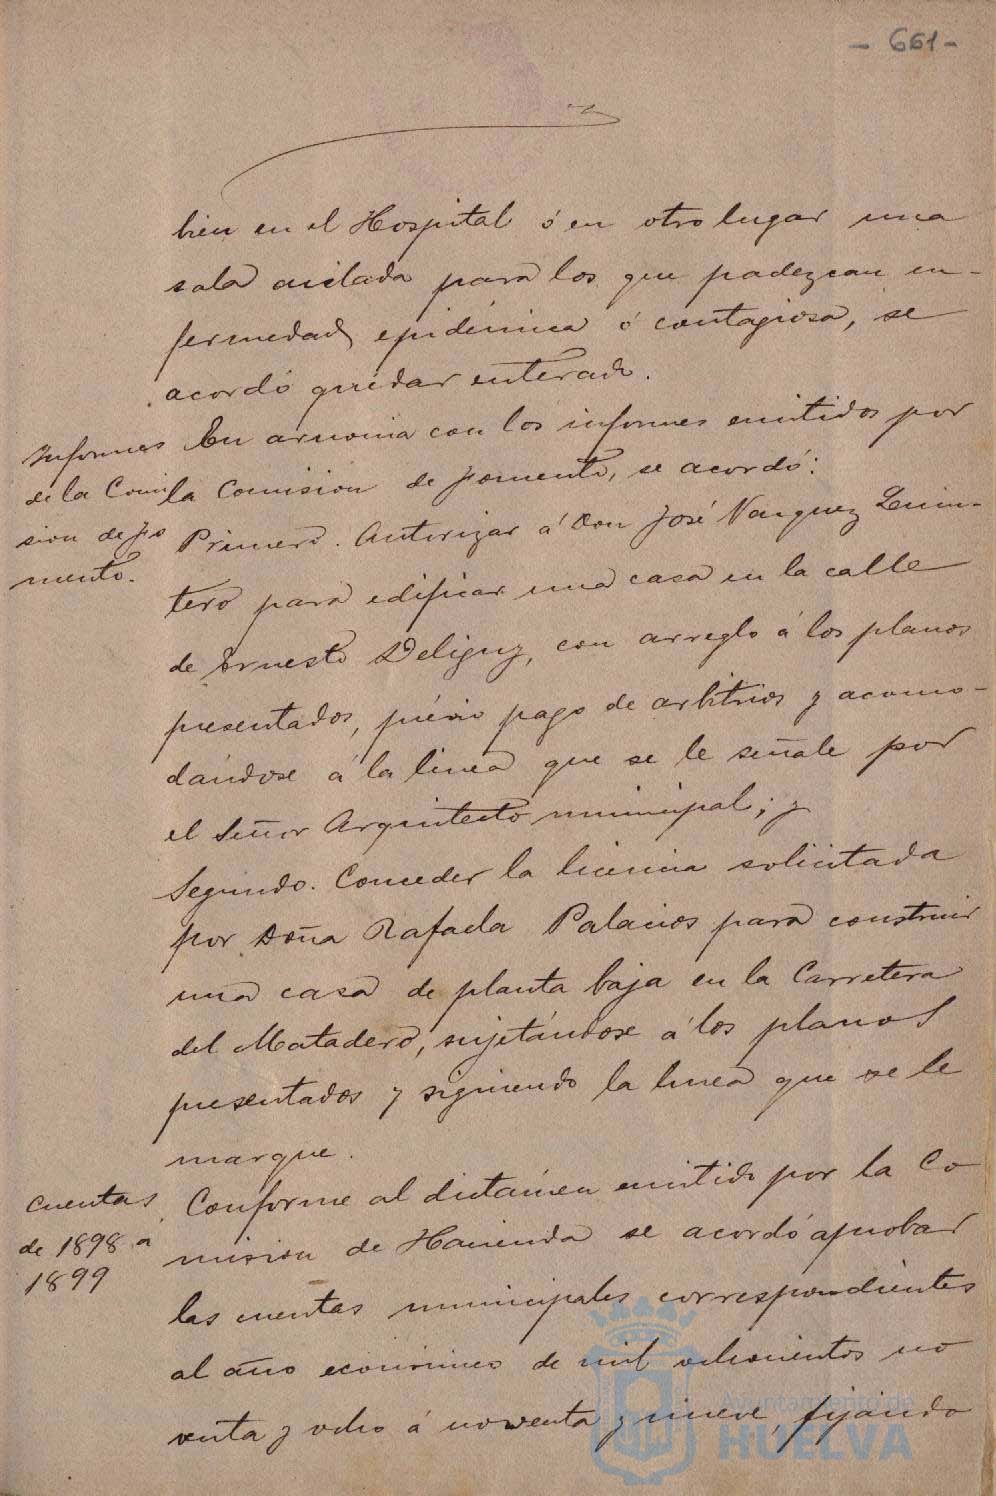 - 661 -
bien en el Hospital ó en otro lugar una
sala aislada para los que padezcan en-
fermedad epidémica ó contagiosa, se
acordó quedar enterado.
Informes
de la Comi
sion de Fo
mento.
En armonia con los informes emitidos por
la Comision de Fomento, se acordó:
Primero. Autorizar á Don José Vazquez Quin-
tero para edificar una casa en la calle
de Ernesto Deligny, con arreglo á los planos
presentados, prévio pago de arbitrios y acomo-
dándose á la linea que se le señale por
el Señor Arquitecto municipal; y
Segundo. Conceder la licencia solicitada
por Doña Rafaela Palacios para construir
una casa de planta baja en la Carretera
del Matadero, sujetándose á los planos
presentados y siguiendo la linea que se le
marque.
Cuentas
de 1898 a
1899
Conforme al dictámen emitido por la Co
mision de Hacienda se acordó aprobar
las cuentas municipales correspondientes
al año económico de mil ochocientos no
venta y ocho á noventa y nueve, fijando
Ayuntamiento de
HUELVA